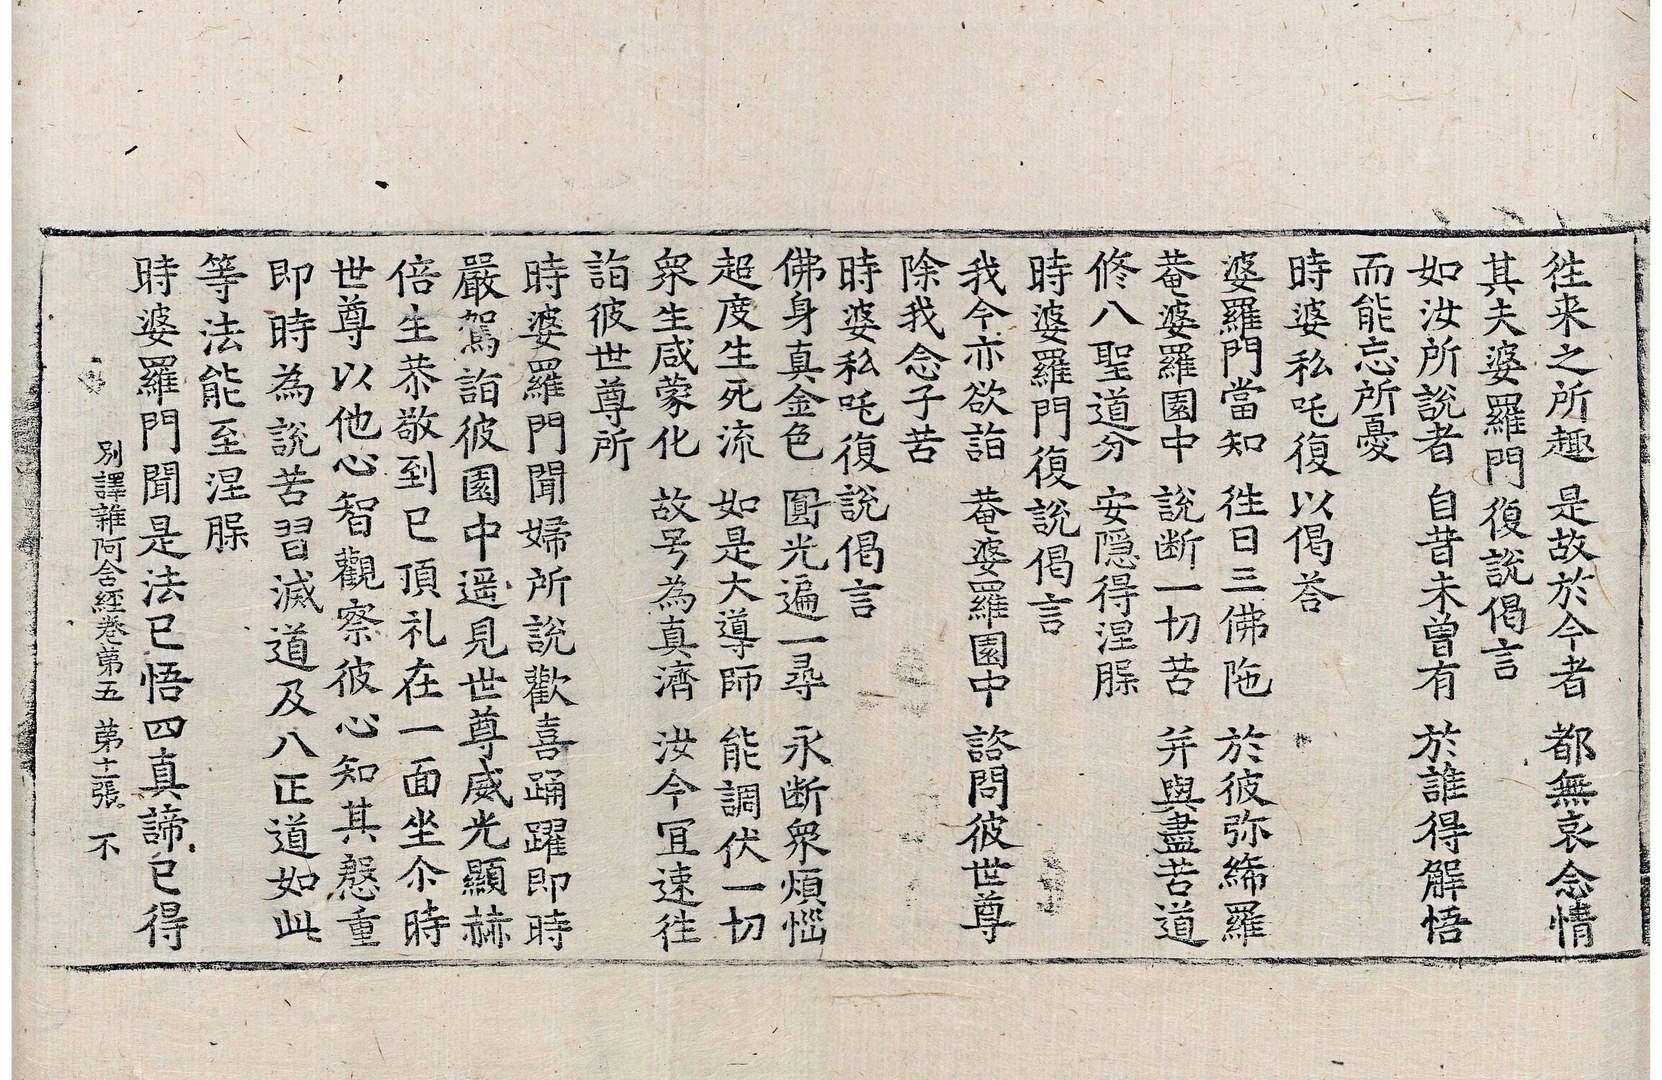 徃来之所趣 是故於今者 都無哀念情
其夫婆羅門復說偈言
如汝所說者 自昔未曾有 於誰得解悟
而能忘所憂
時婆私吒復以偈荅
婆羅門當知 徃日三佛陁 於彼弥絺羅
菴婆羅園中 說断一切苦 并與盡苦道
修八聖道分 安隠得涅槃
時婆羅門復說偈言
我今亦欲詣 菴婆羅園中 諮問彼世尊
除我念子苦
時婆私吒復說偈言
佛身真金色 圓光遍一尋 永断衆煩惱
超度生死流 如是大導師 能調伏一切
衆生咸蒙化 故号為真濟 汝今冝速徃
詣彼世尊所
時婆羅門聞婦所說歡喜踊躍即時
嚴駕詣彼園中遥見世尊威光顯赫
倍生恭敬到已頂礼在一面坐尒時
世尊以他心智觀察彼心知其慇重
即時為說苦習滅道及八正道如此
等法能至涅槃
時婆羅門聞是法已悟四真諦已得
別譯雜阿含經卷第五 第十一張 不